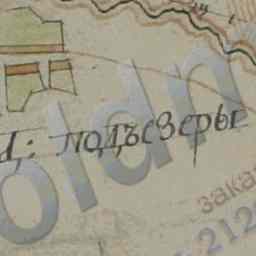 д: подъезеры
oldn
зака
212